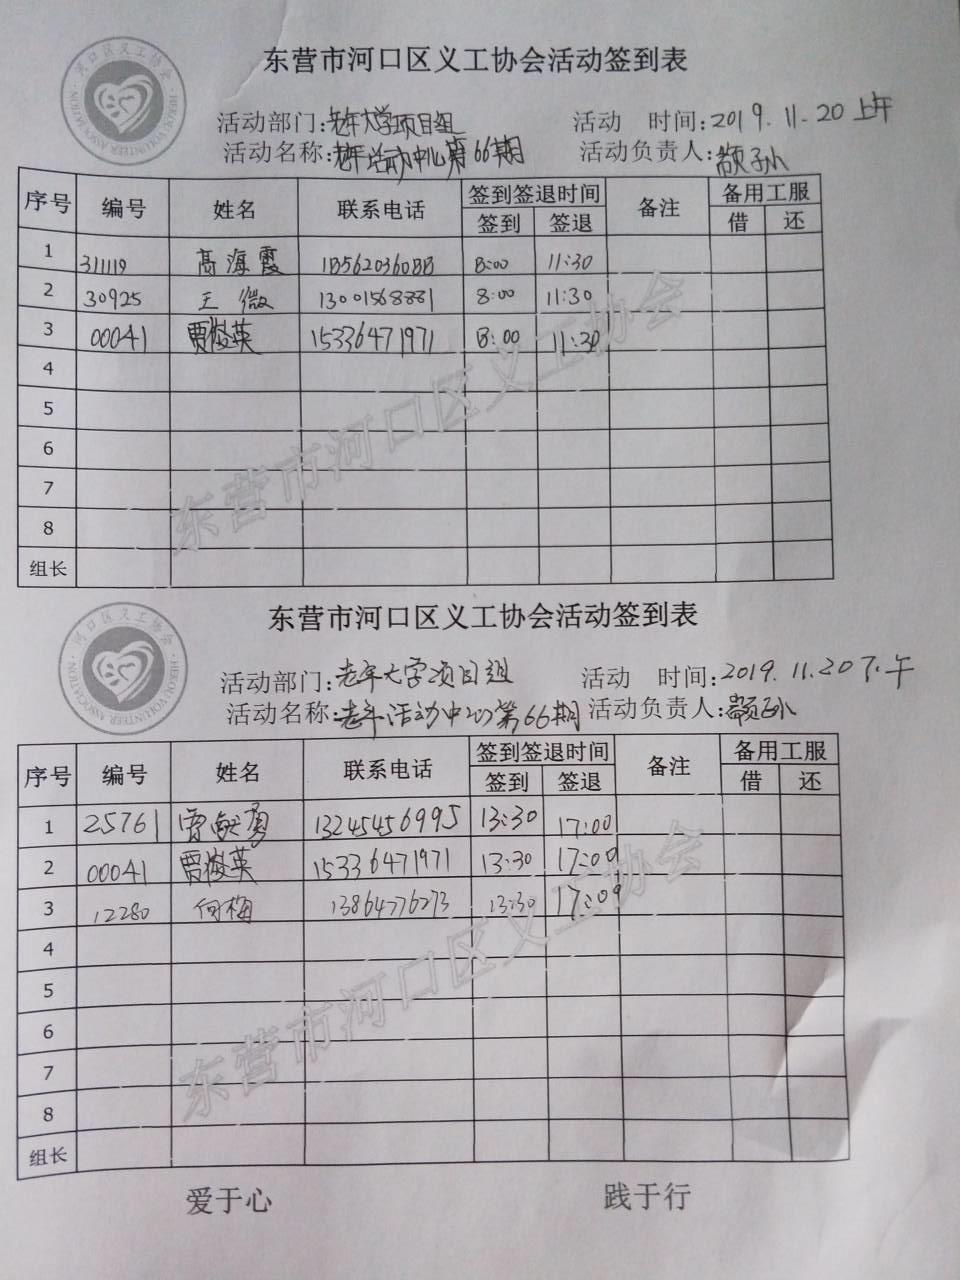 东营市河口区义工协会活动签到表
河口区义工协会
HEKOU VOLUNTEER ASSOCIATION
活动部门:老年大学项目组 活动 时间:2019.11.20上午
活动名称:老年活动中心第66期 活动负责人:
序号 编号 姓名 联系电话 签到签退时间 备注 备用工服
签到 签退 借 还
1 311119 高海霞 18562036088 8:00 11:30
2 30925 王微 13001568881 8:00 11:30
3 00041 贾俊英 15336471971 8:00 11:30
4
5
6
7
8
组长
东营市河口区义工协会
东营市河口区义工协会活动签到表
河口区义工协会
HEKOU VOLUNTEER ASSOCIATION
活动部门:老年大学项目组 活动 时间:2019.11.20下午
活动名称:老年活动中心第66期 活动负责人:
序号 编号 姓名 联系电话 签到签退时间 备注 备用工服
签到 签退 借 还
1 25761 13245456995 13:30 17:00
2 00041 贾俊英 15336471971 13:30 17:00
3 12280 何梅 13864776273 13:30 17:00
4
5
6
7
8
组长
东营市河口区义工协会
爱于心 践于行